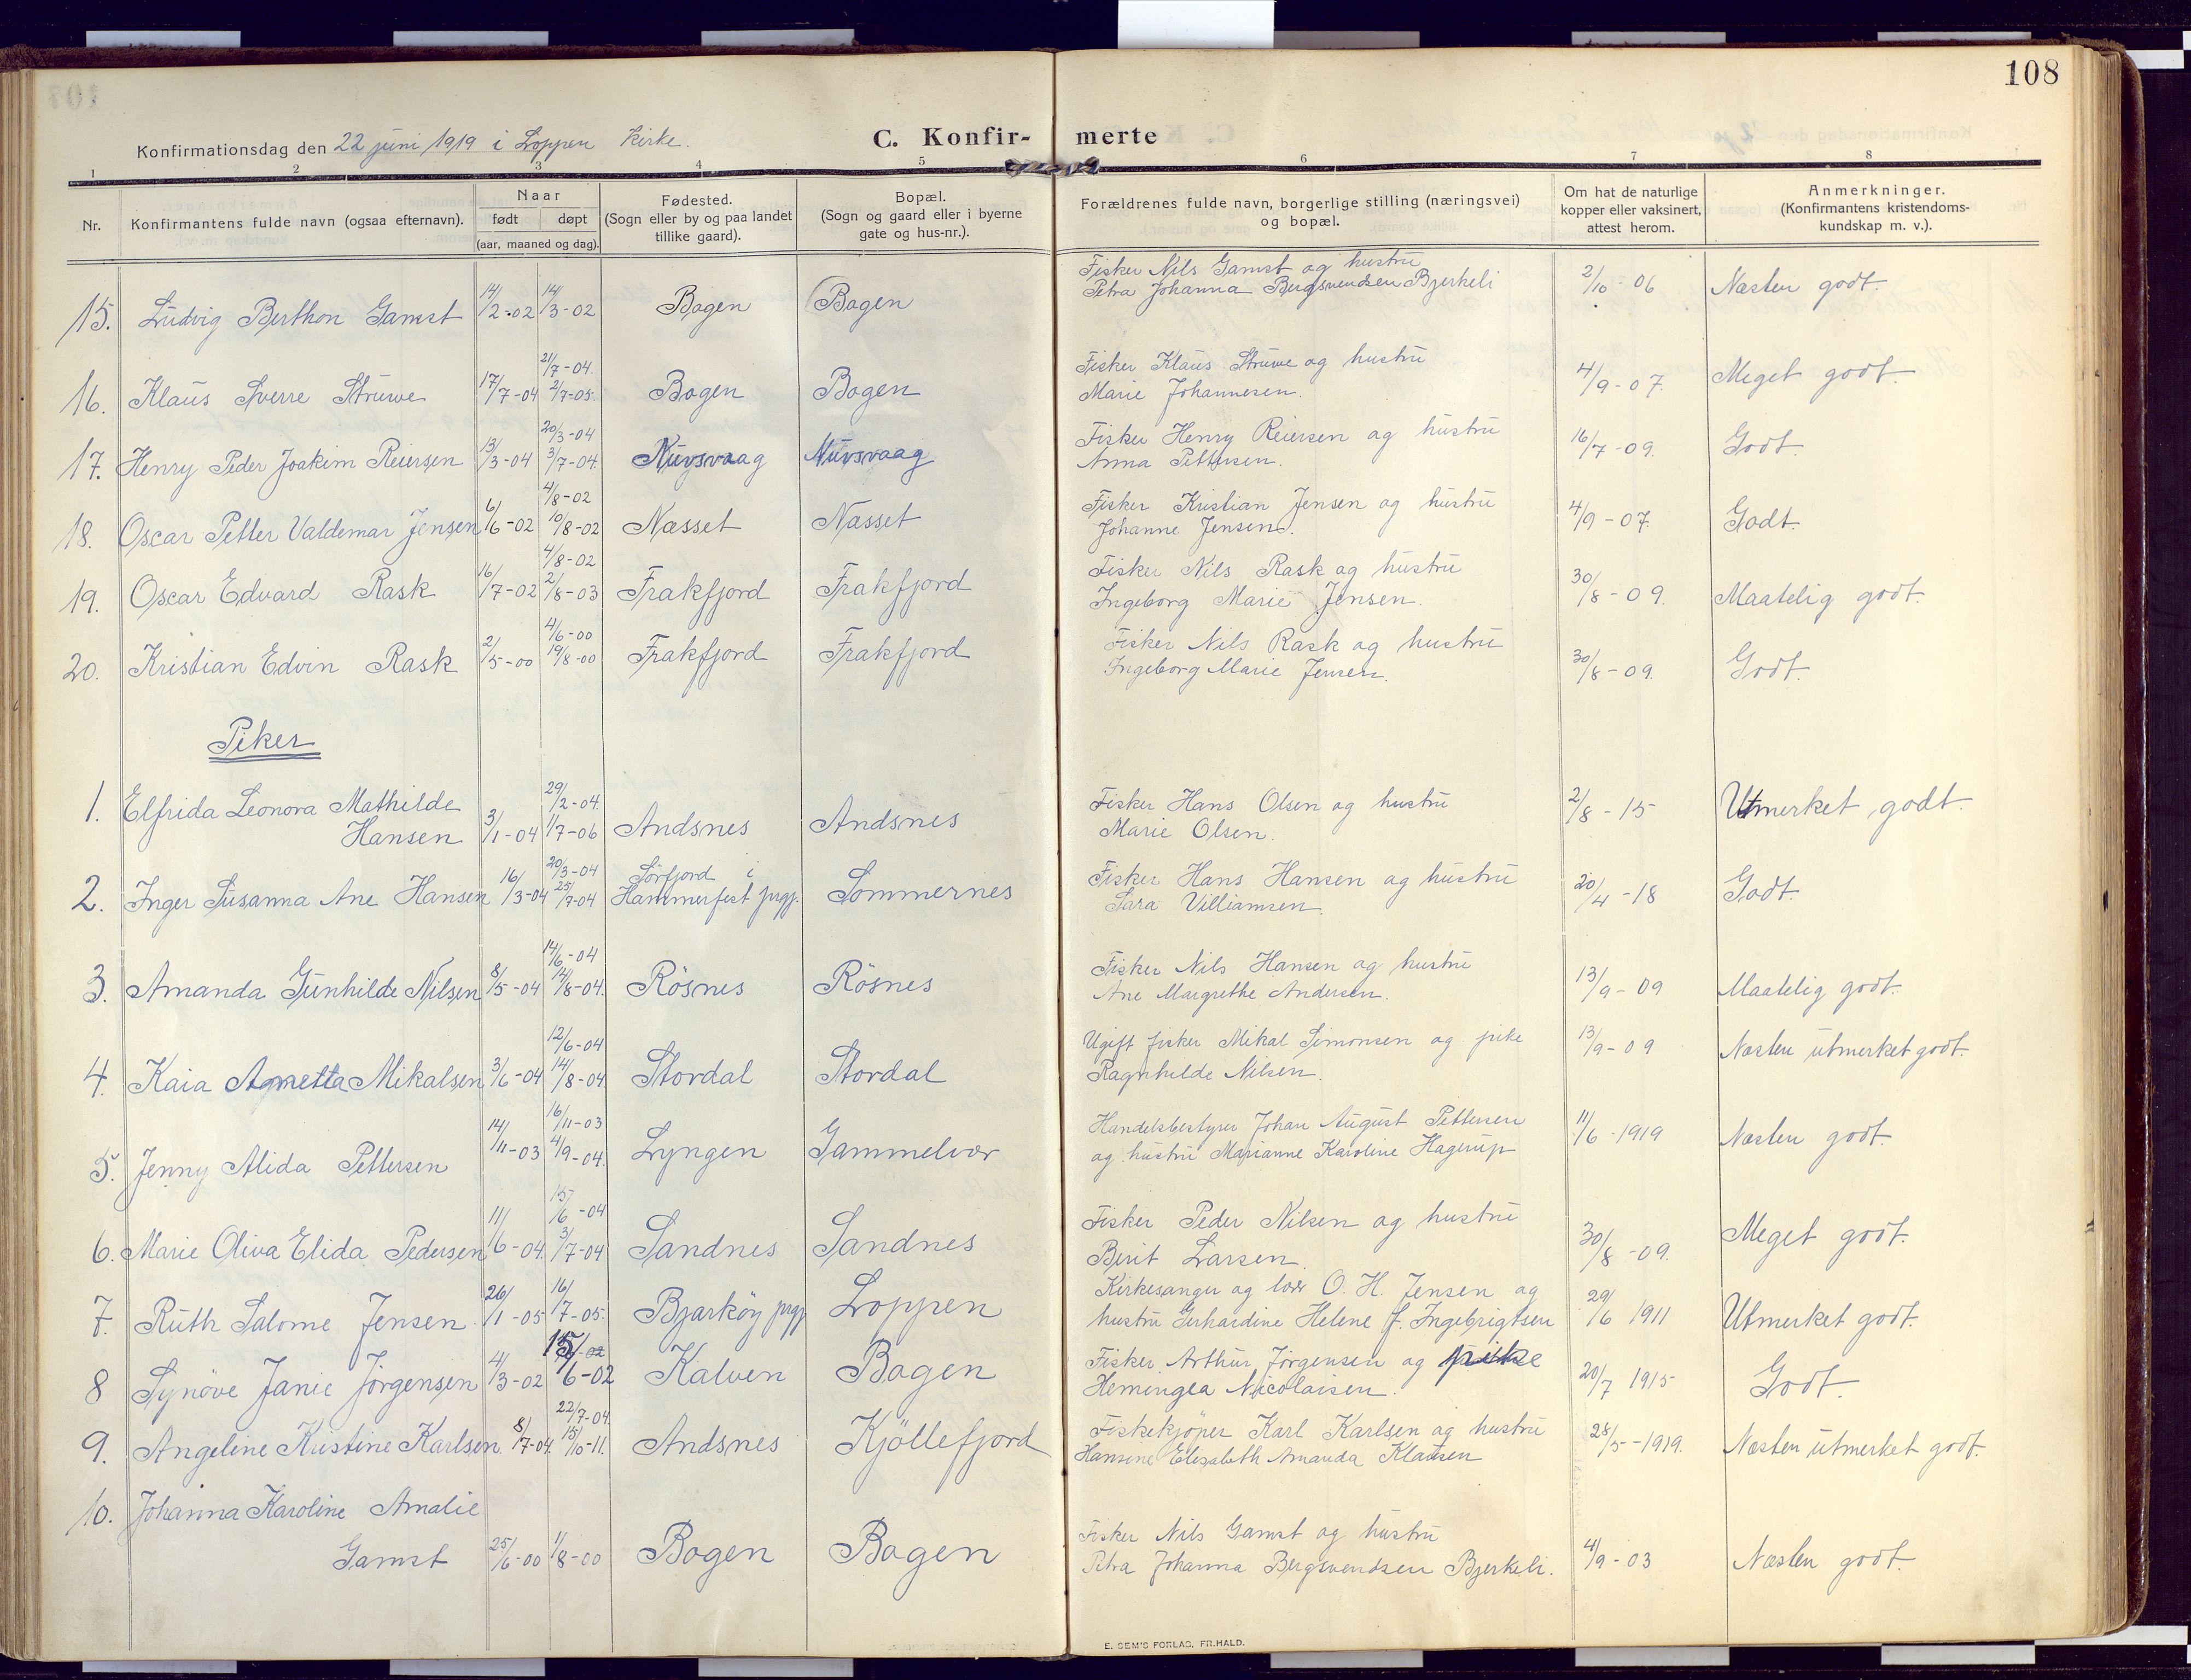 108
Konfirmationsdag den 22 juni 1919 i Loppen kirke.
C. Konfir-
merte
1 2 3 4 5 6 7 8
Nr.
Konfirmantens fulde navn (ogsaa efternavn).
Naar
født døpt
(aar, maaned og dag).
Fødested.
(Sogn eller by og paa landet
tillike gaard).
Bopæl.
(Sogn og gaard eller i byerne
gate og hus-nr.).
Forældrenes fulde navn, borgerlige stilling (næringsvei)
og bopæl.
Om hat de naturlige
kopper eller vaksinert,
attest herom.
Anmerkninger.
(Konfirmantens kristendoms-
kundskap m. v.).
Fisker Nils Gamst og hustru
15. Ludvig Berthon Gamst 14/2-02 14/3-02 Bogen Bogen Petra Johanna Bergsvendsen Bjerkeli 2/10-06 Næsten godt.
21/7-04. Fisker Klaus Struwe og hustru
16. Klaus Sverre Struwe 17/7-04 2/7-05. Bogen Bogen Marie Johannesen. 4/9-07. Meget godt.
20/3-04 Fisker Henry Reiersen og hustru
17. Henry Peder Joakim Reiersen 13/3-04 3/7-04. Nuvsvaag Nuvsvaag Anna Pettersen. 16/7-09. Godt.
4/8-02 Fisker Kristian Jensen og hustru
18. Oscar Petter Valdemar Jensen 6/6-02 10/8-02 Næsset Næsset Johanne Jensen. 4/9-07. Godt.
4/8-02 Fisker Nils Rask og hustru
19. Oscar Edvard Rask 16/7-02 2/8-03 Frakfjord Frakfjord Ingeborg Marie Jensen. 30/8-09. Maatelig godt.
4/6-00 Fisker Nils Rask og hustru
20. Kristian Edvin Rask 2/5-00 19/8-00 Frakfjord Frakfjord Ingeborg Marie Jensen. 30/8-09. Godt.
Piker
1. Elfrida Leonora Mathilde 29/2-04. Fisker Hans Olsen og hustru
Hansen 3/1-04 1/7-06 Andsnes Andsnes Marie Olsen. 2/8-15 Utmerket godt.
20/3-04 Sörfjord i Fisker Hans Hansen og hustru
2. Inger Susanna Ane Hansen 16/3-04 25/7-04 Hammerfest prgj. Sommernes Sara Villiamsen. 20/4-18 Godt.
14/6-04 Fisker Nils Hansen og hustru
3. Amanda Gunhilde Nilsen 8/5-04 14/8-04. Rösnes Rösnes Ane Margrethe Andersen. 13/9-09 Maatelig godt.
12/6-04 Ugift fisker Mikal Simonsen og pike
4. Kaia Agnetta Mikalsen 3/6-04 14/8-04. Stordal Stordal Ragnhilde Nilsen. 13/9-09 Næsten utmerket godt.
16/11-03 Handelsbestyrer Johan August Pettersen
5. Jenny Alida Pettersen 14/11-03 4/9-04. Lyngen Gammelvær og hustru Marianne Karoline Hagerup 11/6-1919 Næsten godt.
15/6-04 Fisker Peder Nilsen og hustru
6. Marie Oliva Elida Pedersen 11/6-04. 3/7-04 Sandnes Sandnes Berit Larsen. 30/8-09. Meget godt.
Kirkesanger og lær O. H. Jensen og
7. Ruth Salome Jensen 26/1-05 16/7-05. Bjarköy prgj Loppen hustru Gerhardine Helene f. Ingebrigtsen 29/6 1911 Utmerket godt.
Fisker Arthur Jörgensen og pike
8 Synöve Janie Jörgensen 4/3-02 15/6-02 Kalven Bogen Hemingea Nicolaisen. 20/7 1915 Godt.
22/7-04. Fiskekjöper Karl Karlsen og hustru
9. Angeline Kristine Karlsen 8/7-04. 15/10-11. Andsnes Kjöllefjord Hansine Elisabeth Amanda Klausen 28/5-1919. Næsten utmerket godt.
10. Johanna Karoline Amalie Fisker Nils Gamst og hustru
Gamst 25/6-00 1/8-00 Bogen Bogen Petra Johanna Bergsvendsen Bjerkeli. 4/9-03 Næsten godt.
E. SEM'S FORLAG, FR.HALD.